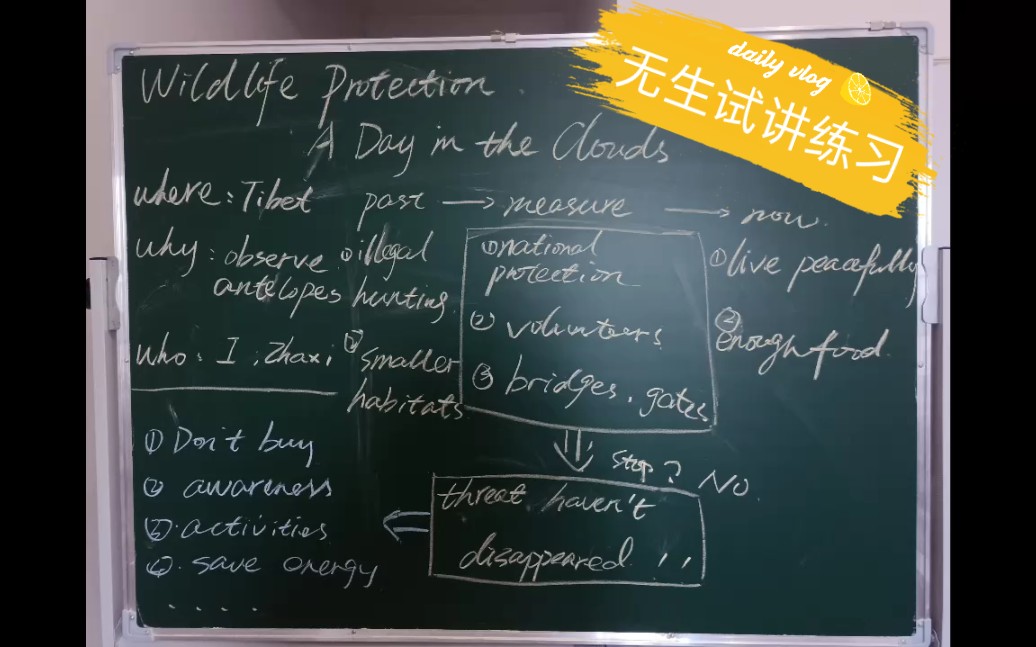 daily vlog
无生试讲练习
Wildlife Protection
A Day in the Clouds
where: Tibet
past → measure → now
why: observe antelopes
① illegal hunting
② smaller habitats
who: I, Zhaxi
① national protection
② volunteers
③ bridges, gates
① live peacefully
② enough food
stop? No
threat haven't
disappeared
① Don't buy
② awareness
③ activities
④ save energy
.....